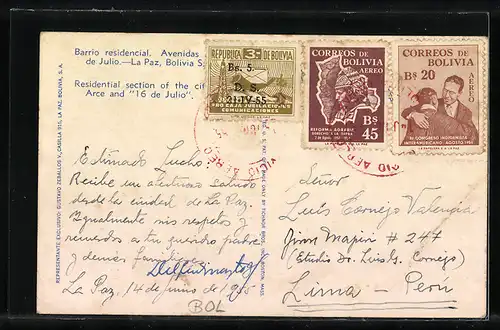 Barrio residencial. Avenidas
de Julio.—La Paz, Bolivia S.
Residential section of the cit
Arce and "16 de Julio".
REPUBLICA 3c. DE BOLIVIA
Bs. 5.—
D. S.
21-IV-55
PRO CAJA JUBILACIONES
COMUNICACIONES
CORREOS DE
BOLIVIA
AEREO
Bs
45
REFORMA AGRARIA
CORREOS DE
BOLIVIA
Bs 20
AEREO
III CONGRESO INDIGENISTA
INTERAMERICANO - AGOSTO, 1954
REPRESENTANTE EXCLUSIVO: GUSTAVO ZEBALLOS V., CASILLA 915, LA PAZ, BOLIVIA, S. A.
Estimado Lucho:
Recibe un afectuoso saludo
desde la ciudad de La Paz.
Igualmente mis respetos y
recuerdos a tu querido padre
y demás familiares.
La Paz, 14 de junio de 1955
BOL
Señor
Luis Cornejo Valencia
# 247
(Estudio Dr. Luis G. Cornejo)
Lima – Perú